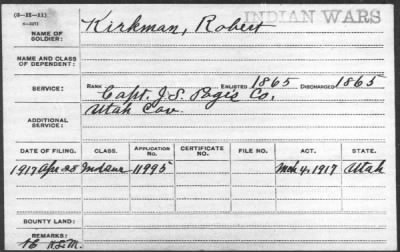 (3-XX-XX)
NAME OF SOLDIER: Kirkman, Robert INDIAN WARS
NAME AND CLASS OF DEPENDENT:
SERVICE: RANK ENLISTED 1865 DISCHARGED 1865
Capt. J. S. Page's Co.
Utah Cav.
ADDITIONAL SERVICE:
DATE OF FILING. CLASS. APPLICATION No. CERTIFICATE No. FILE NO. ACT. STATE.
1917 Apr 25 11995 Mch 4, 1917 Utah
BOUNTY LAND:
REMARKS: